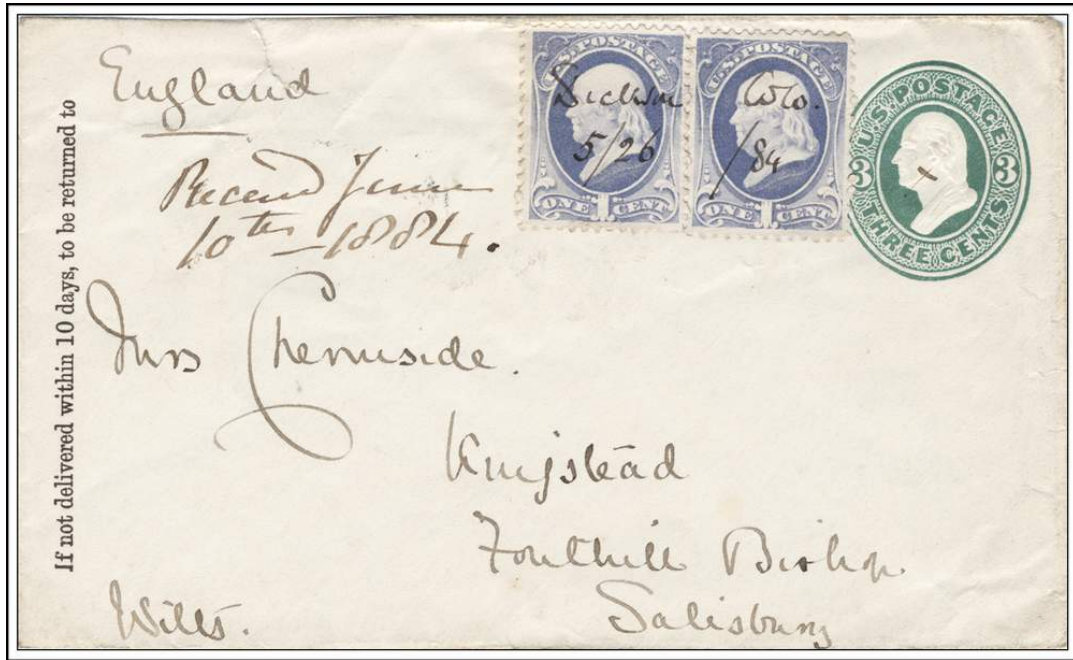 If not delivered within 10 days, to be returned to
England
Received June
10th - 1884.
U.S. POSTAGE
Dickson
5/26
ONE CENT
U.S. POSTAGE
Colo.
/84
ONE CENT
U.S. POSTAGE
3 3
THREE CENTS
Mrs Chermside.
Knigstead
Fonthill Bishop
Salisbury
Wilts.